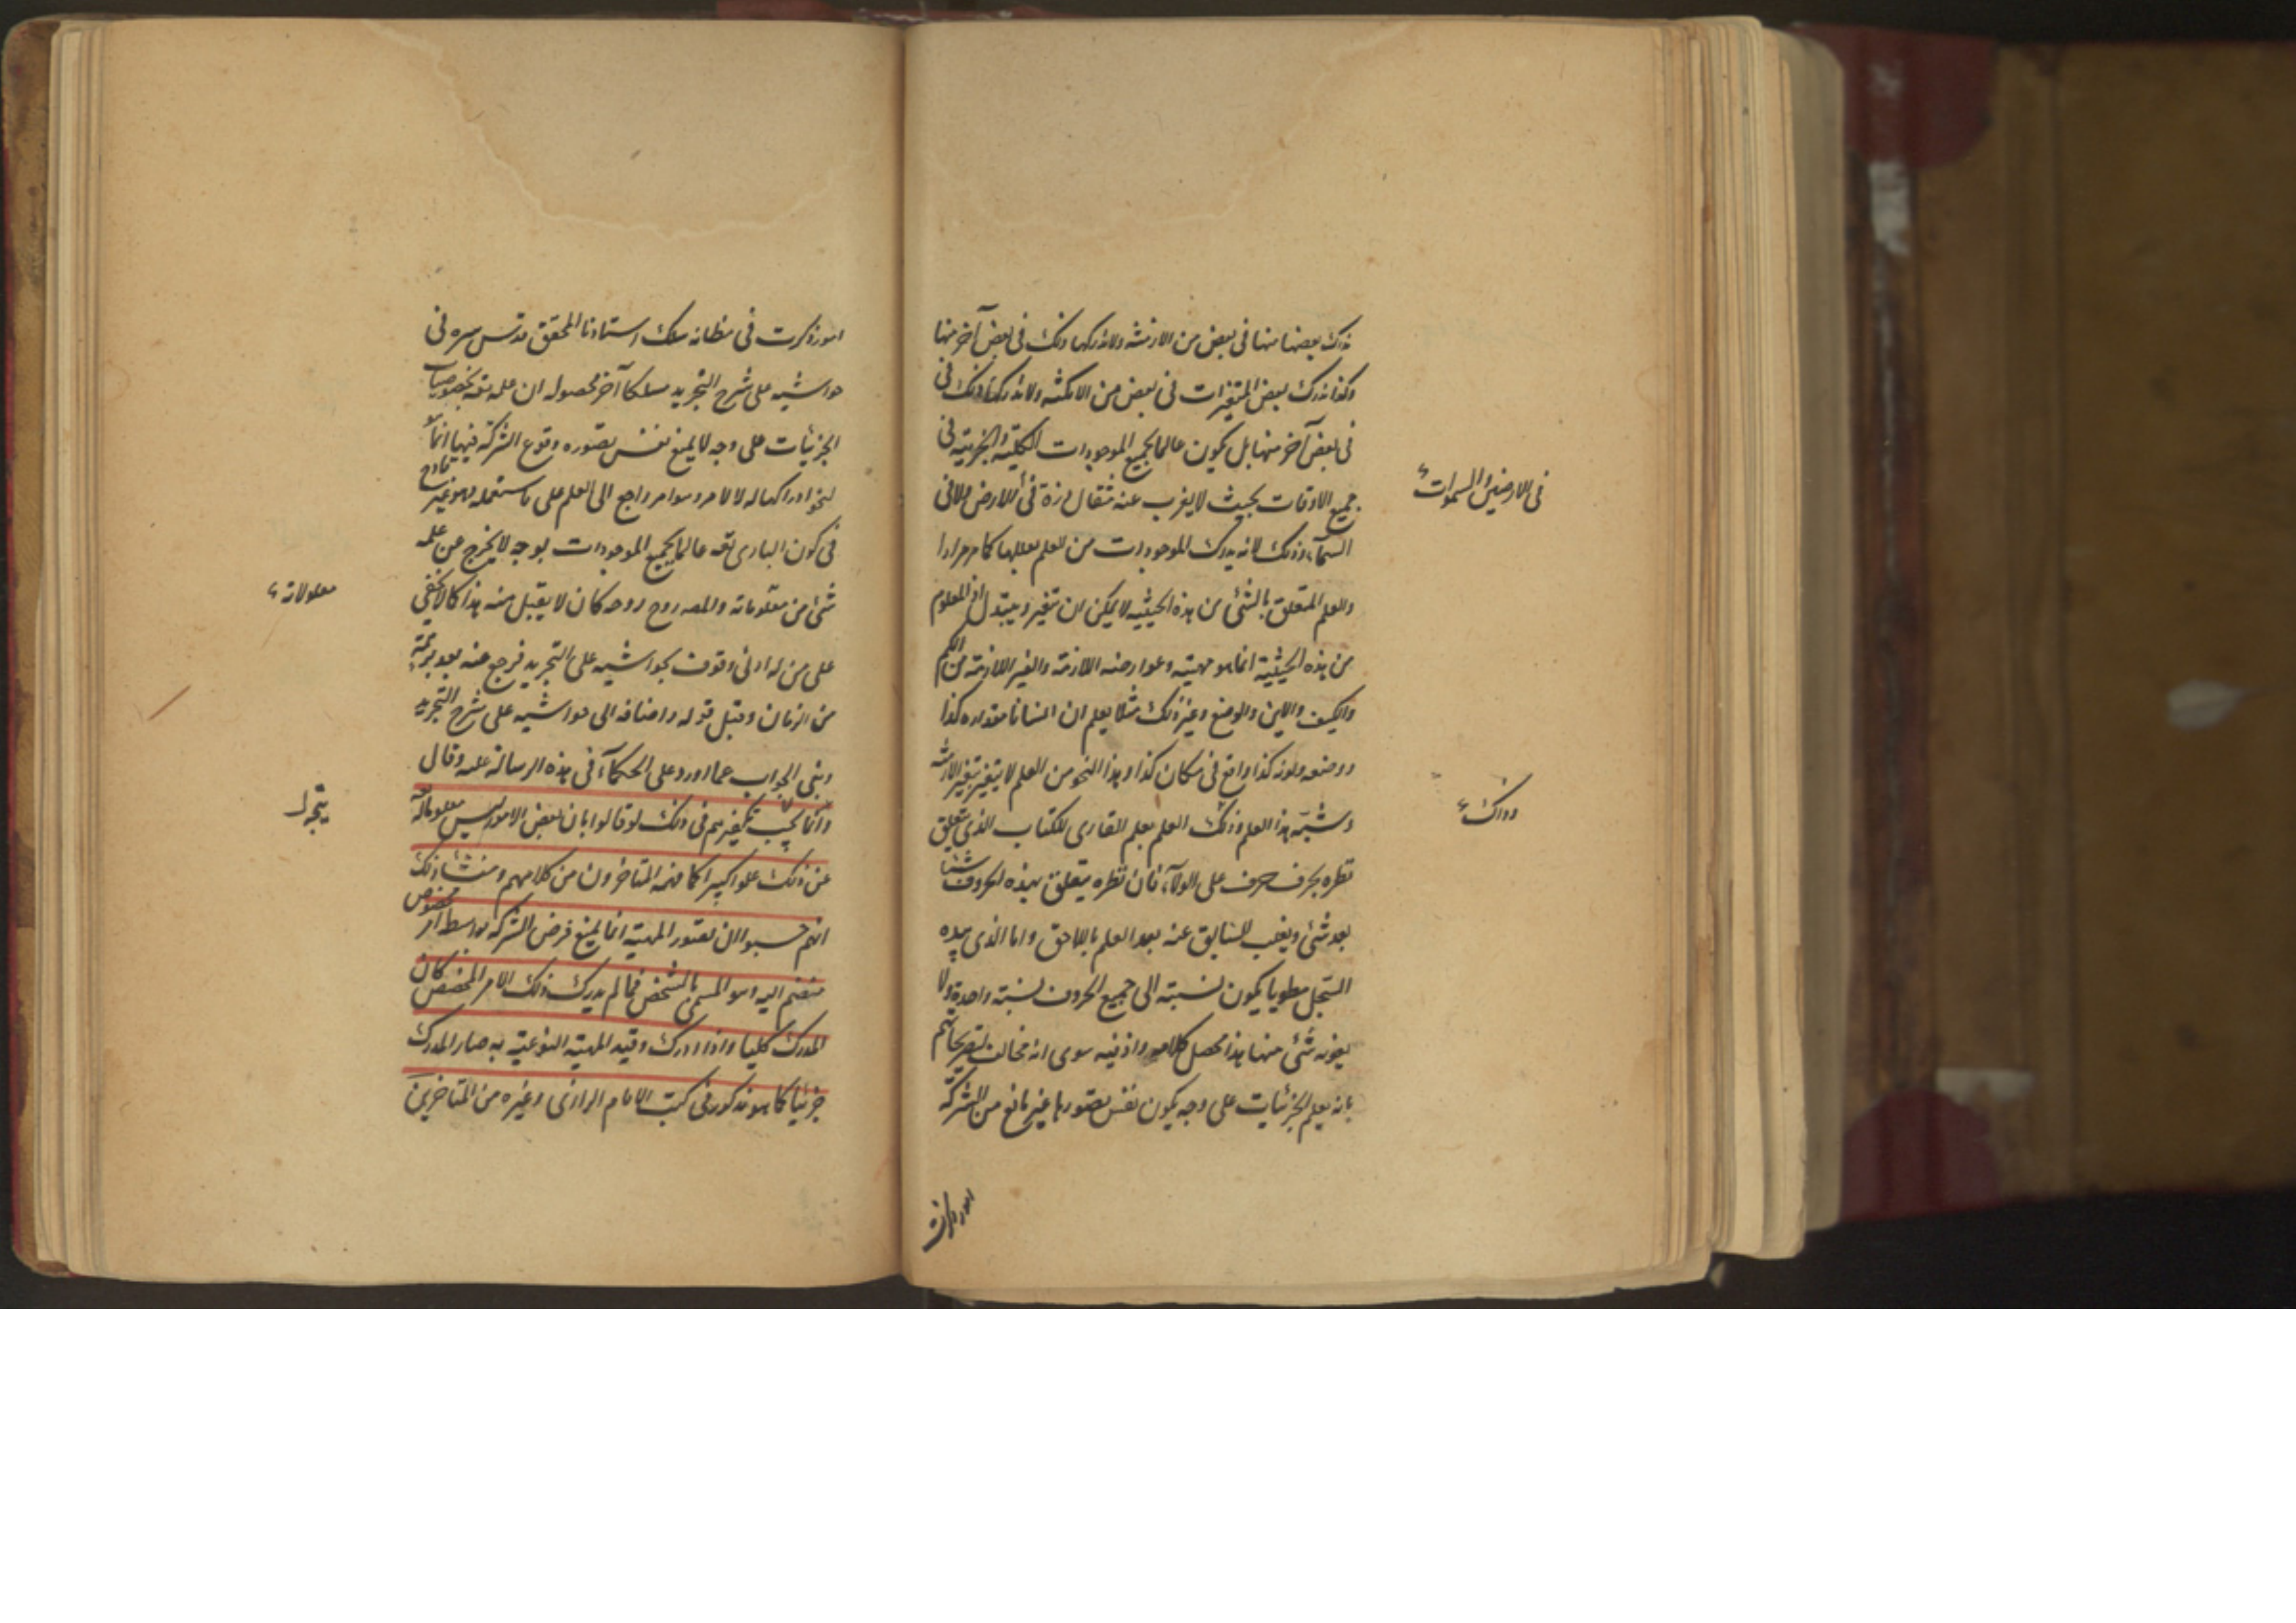 ندرك بعضها منها فى بعض من الازمنة ولا ندركها وذلك فى بعض آخر منها
وكذا ندرك بعض المتغيرات فى بعض من الامكنة ولا ندركها وذلك فى
فى بعض آخر منها بل يكون عالما بجميع الموجودات الكلية والجزئية فى
جميع الاوقات بحيث لا يعزب عنه مثقال ذرة فى الارض ولا فى
السماء وذلك لانه يدرك الموجودات من العلم بعللها كما مر مرارا
والعلم المتعلق بالشئ من هذه الحيثية لا يمكن ان يتغير ويتبدل اذ المعلوم
من هذه الحيثية انما هو مهيته وعوارضه اللازمة والغير اللازمة من الكم
والكيف والاين والوضع وغير ذلك مثلا يعلم ان انسانا مقداره كذا
ووضعه ولونه كذا واقع فى مكان كذا وهذا النحو من العلم لا يتغير بتغير الازمنة
وشبه هذا العلم وذلك العلم بعلم القارى للكتاب الذى يتعلق
نظره بحرف حرف على الولاء فان نظره يتعلق بهذه الحروف شيئا
بعد شئ ويغيب السابق عنه بعد العلم باللاحق واما الذى بيده
السجل مطويا يكون نسبته الى جميع الحروف نسبة واحدة ولا
يفوته شئ منها هذا محصل كلامهم واذ فيه سوى انه مخالف لتصريحاتهم
بانه يعلم الجزئيات على وجه يكون نفس تصورها غير مانع من الشركة
فى الارضين والسموات
وذاك
امور ذكرت
امور ذكرت فى مظانه سلك استادنا المحقق قدس سره فى
حواشيه على شرح التجريد مسلكا آخر محصوله ان علمه تعه بخصوصيات
الجزئيات على وجه لا يمنع نفس تصوره وقوع الشركة فيها انما
لنحو ادراكها له لا لامر سواه راجع الى العلم على ما ستعمله وهو غير قادح
فى كون البارى تعه عالما بجميع الموجودات بوجه لا يخرج عن علمه
شئ من معلوماته والمصـ روح روحه كان لا يقبل منه هذا كما لا يخفى
على من له ادنى وقوف بحواشيه على التجريد فرجع عنه بعد برهة
من الزمان وقبل قوله واضافه الى حواشيه على شرح التجريد
وبنى الجواب عما اورد على الحكماء فى هذه الرسالة عليه وقال
وانما يجب تكفيرهم فى ذلك لو قالوا بان بعض الامور ليس معلوما له تعه
عن ذلك علوا كبيرا كما فهمه المتاخرون من كلامهم ومنشا ذلك
انهم حسبوا ان تصور المهية انما يمنع فرض الشركة بواسطة امر مخصوص
منضم اليه وهو المسمى بالتشخص فما لم يدرك ذلك الامر المخصص كان
المدرك كليا واذا ادرك وقيد المهية النوعية به صار المدرك
جزئيا كما هو مذكور فى كتب الامام الرازى وغيره من المتاخرين
معلولاته